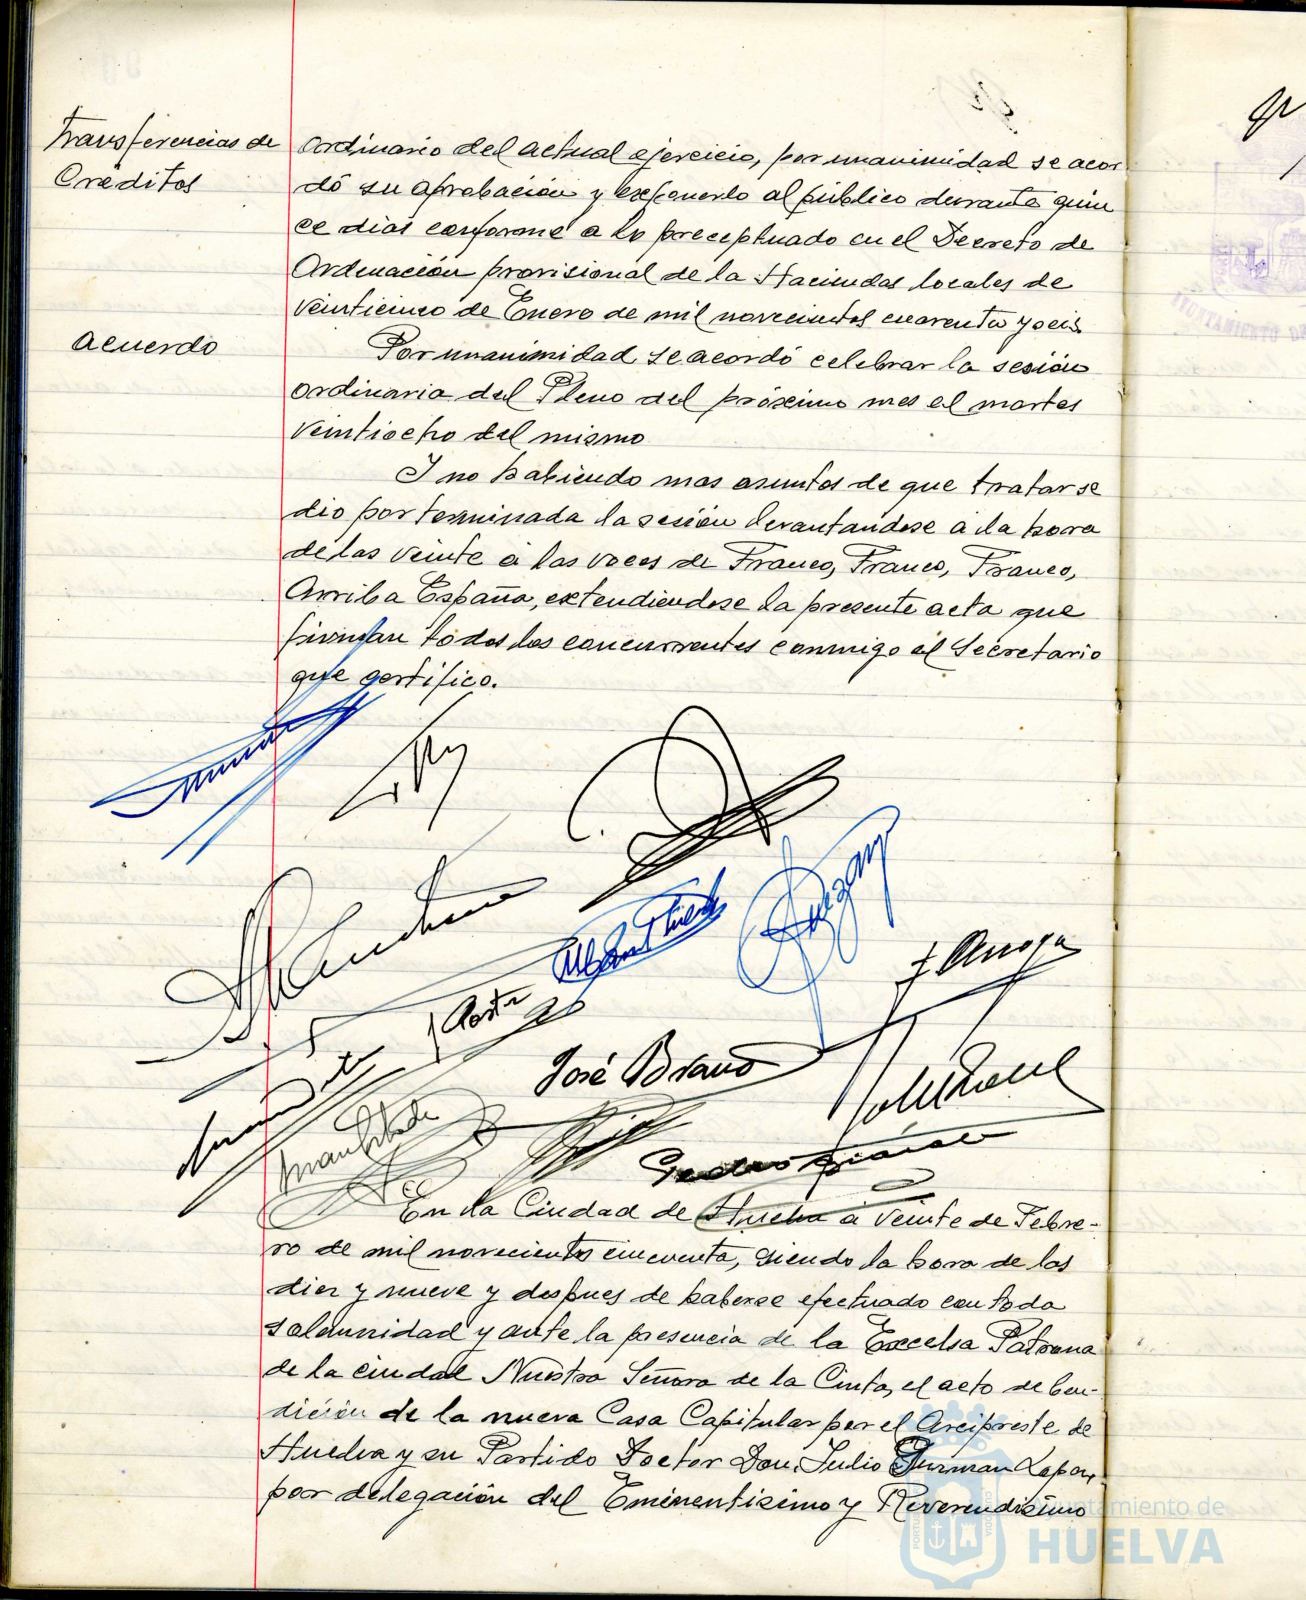 Transferencias de
Créditos
ordinario del actual ejercicio, por unanimidad se acor
dó su aprobación y exponerlo al público durante quin
ce dias conforme a lo preceptuado en el Decreto de
Ordenación provisional de la Haciendas locales de
veinticinco de Enero de mil novecientos cuarenta y seis
Acuerdo
Por unanimidad se acordó celebrar la sesión
ordinaria del Pleno del próximo mes el martes
veintiocho del mismo
Y no habiendo mas asuntos de que tratar se
dio por terminada la sesión levantandose a la hora
de las veinte a las voces de Franco, Franco, Franco,
Arriba España, extendiendose la presente acta que
firman todos los concurrentes conmigo el Secretario
que certifico.
J Arroyo
José Bravo
En la Ciudad de Huelva a veinte de Febre-
ro de mil novecientos cincuenta, siendo la hora de las
diez y nueve y despues de haberse efectuado con toda
solemnidad y ante la presencia de la Excelsa Patrona
de la ciudad Nuestra Señora de la Cinta, el acto de ben-
dición de la nueva Casa Capitular por el Arcipreste de
Huelva y su Partido Doctor Don Julio Guzman Lopez,
por delegación del Eminentisimo y Reverendisimo
Ayuntamiento de
HUELVA